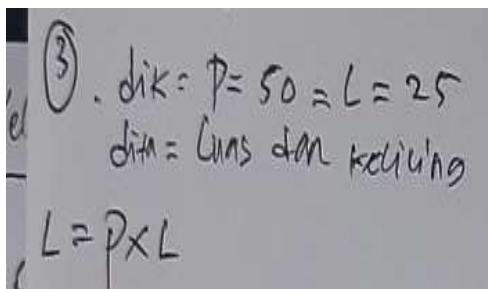 ③. dik = P = 50 = L = 25
dita = Luas dan keliling
L = P × L